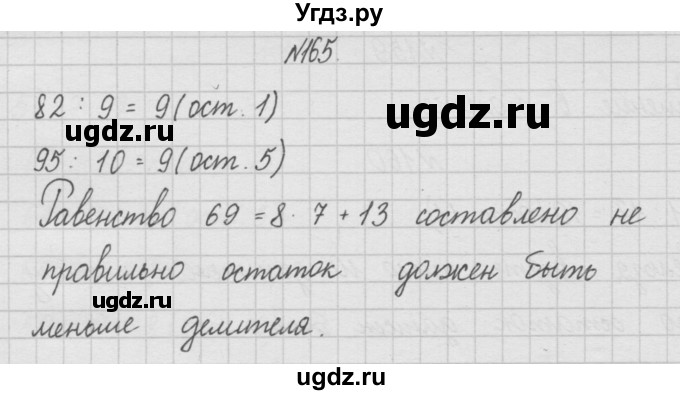 Угдз.ру
№165.
82 : 9 = 9 (ост. 1)
ugdz.ru
ugdz.ru
95 : 10 = 9 (ост. 5)
Равенство 69 = 8 · 7 + 13 составлено не
правильно остаток должен быть
ugdz.ru
меньше делителя.
ugdz.ru